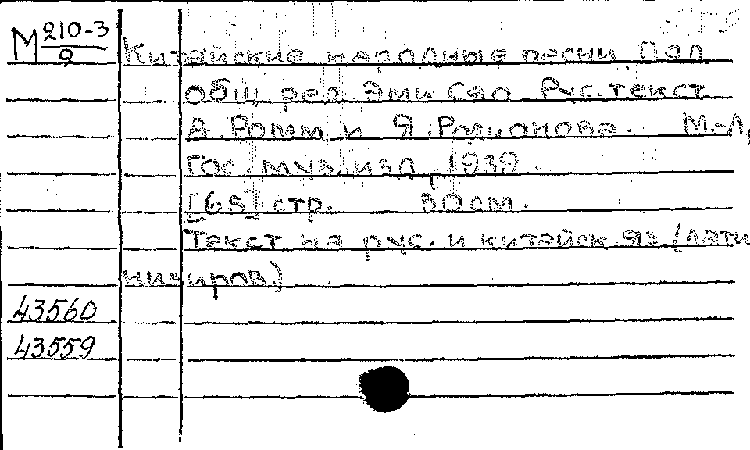 М 210-3
9
Китайские народные песни Под
общ ред Эми Сяо Рус. текст
А. Ромм и Я. Родионова. М-Л,
Гос. муз. изд, 1939.
[68] стр. 30 см.
Текст на рус. и китайск. яз (лати
низиров.)
43560
43559